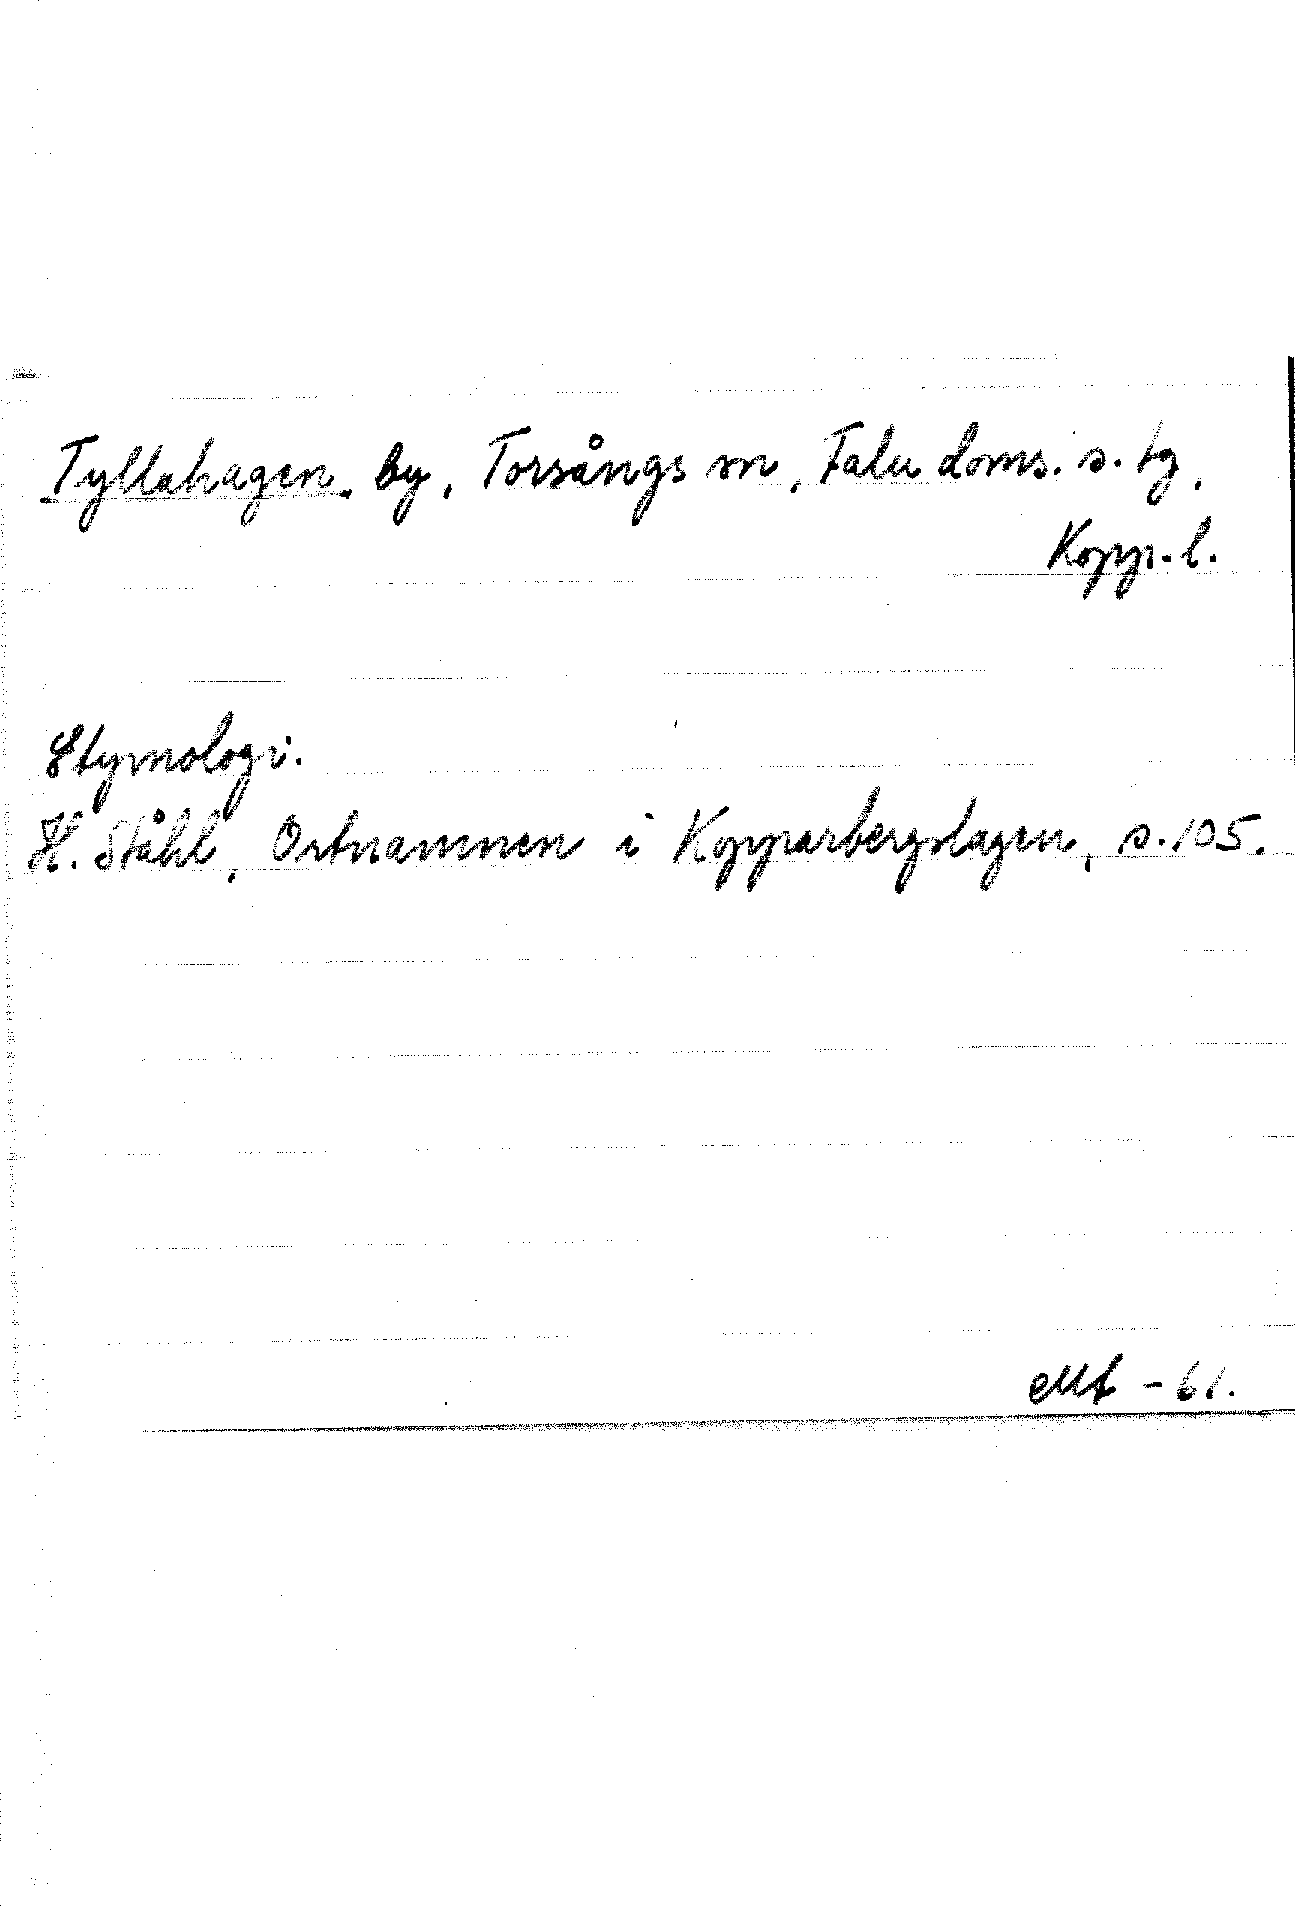 Tyllahagen. by, Torsångs sn, Falu doms. s. tg,
Kopp. l.
Etymologi.
H. Ståhl, Ortnamnen i Kopparbergslagen, s. 105.
-61.